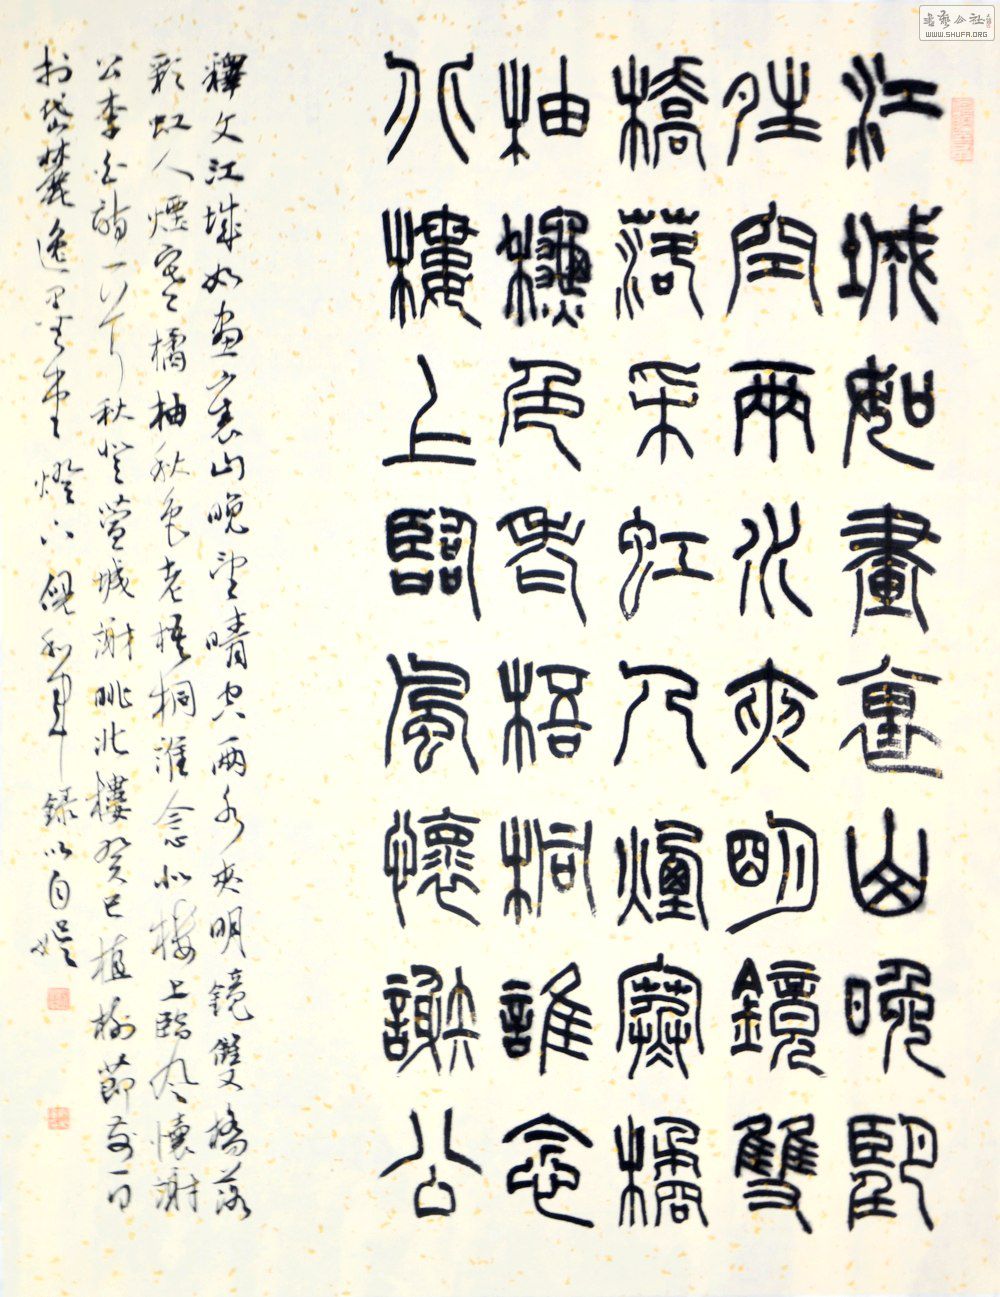 江城如畫裏山晚望
晴空兩水夾明鏡雙
橋落采虹人煙寒橘
柚穐色老梧桐誰念
北樓上臨風懷謝公
釋文江城如畫裏山晚望晴空兩水夾明鏡雙橋落
彩虹人煙寒橘柚秋色老梧桐誰念北樓上臨風懷謝
公李白詩一首秋登宣城謝朓北樓癸巳植樹節前一日
於岱麓逸墨堂燈下 錄以自娛
書藝公社
WWW.SHUFA.ORG